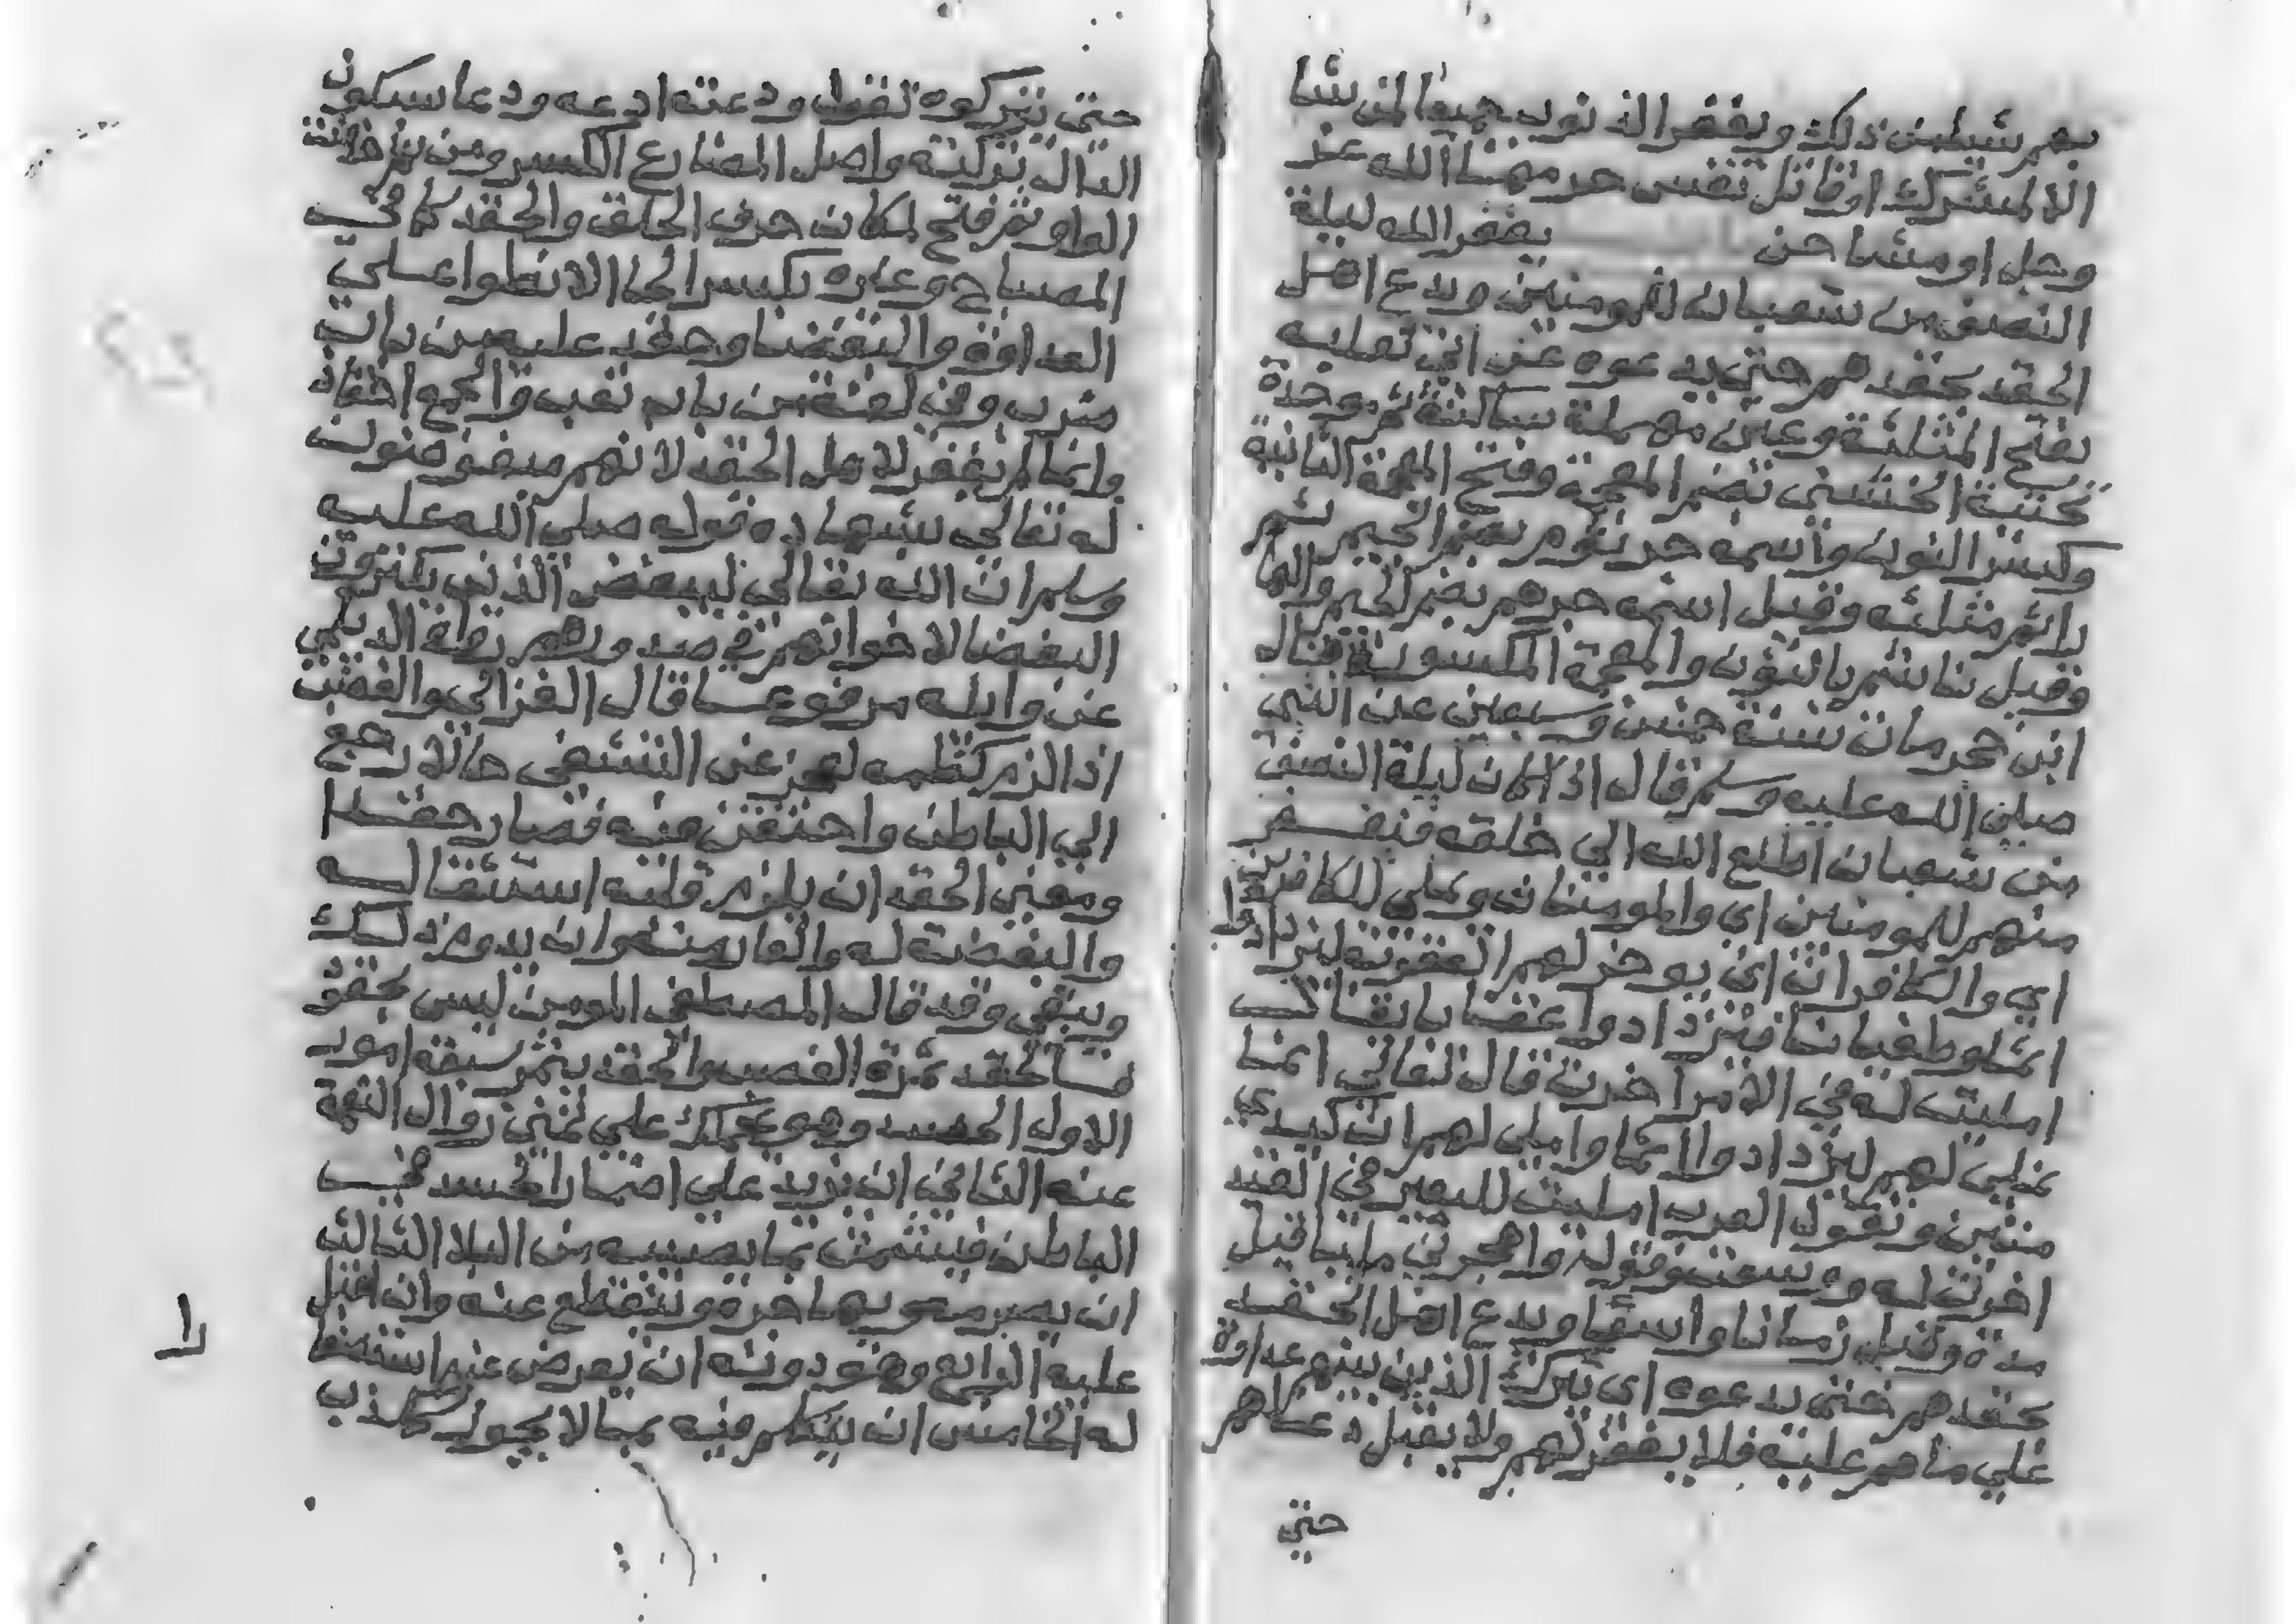 بهم شيطن ذلك ويغفر الذنوب جميعا لمن شا
الا لمشرك او قاتل نفس حرمها الله عز
وجل او مشاحن يغفر الله ليلة
النصف من شعبان للمومنين ويدع اهل
الحقد بحقدهم حتى يدعوه عن ابى ثعلبه
بفتح المثلثة وعين مهملة ساكنة ثم موحدة
الخشنى بضم المعجمة وفتح المعجمة الثانية
وكسر النون واسمه جرثوم بضم الجيم ثم
را ثم مثلثه وقيل اسمه جرهم بضم الجيم والها
وقيل ناشم بالنون والمعجمة المكسورة قال
ابن حجر مات سنة خمس وسبعين عن النبى
صلى الله عليه وسلم قال اذا كان ليلة النصف
من شعبان اطلع الله الي خلقه فيغفر
منهم للمومنين اى والمومنات ويملى للكافرين
اى والكافرات اى يوخر لهم العقوبة ليزدادوا
اثما وطغيانا فيزدادوا عقابا يقال
امليت له في الامر اخرت قال تعالي انما
نملى لهم ليزدادوا اثما واملى لهم ان كيدي
متين وتقول العرب امليت للبعير في القيد
اخرت له ووسعته وقوله واهجرني مليا قيل
مدة وقيل زمانا واسعا ويدع اهل الحقد
بحقدهم حتى يدعوه اى يترك الذين بينهم عداوة
على ما هم عليه فلا يغفر لهم ولا يقبل دعاهم
حتى
حتى يتركوه لفظ ودعته ادعه ودعا بسكون
الدال تركته واصل المضارع الكسر ومن ثم حذفت
الواو ثم فتح لمكان حرف الحلق والحقد كما في
المصباح وغيره بكسر الحا الانطوا علي
العداوة والبغضا وحقد عليه من باب
ضرب وفى لغة من باب تعب والجمع احقاد
وانما لم يغفر لاهل الحقد لانهم مبغوضون
له تعالى بشهادة قوله صلى الله عليه
وسلم ان الله تعالى ليبغض الذين يكنزون
البغضا لاخوانهم في صدورهم رواه الديلمي
عن واثله مرفوعا قال الغزالي والغضب
اذا لزم كظمه لعجز عن التشفى حالا رجع
الي الباطن واحتقن فيه فصار حقدا
ومعنى الحقد ان يلزم قلبه استثقاله
والبغضة له والنفار منه وان يدوم ذلك
ويبقى وقد قال المصطفى المومن ليس بحقود
فالحقد ثمرة الغضب والحقد يثمر سبعة امور
الاول الحسد وهو يحملك على تمنى زوال النعمة
عنه الثانى ان يزيد على اضمار الحسد في
الباطن فيشمت بما يصيبه من البلا الثالث
ان يصبر ويهاجره وينقطع عنه وان اقبل
عليه الرابع وهو دونه ان يعرض عنه استصغارا
له الخامس ان يتكلم فيه بما لا يحل من كذب